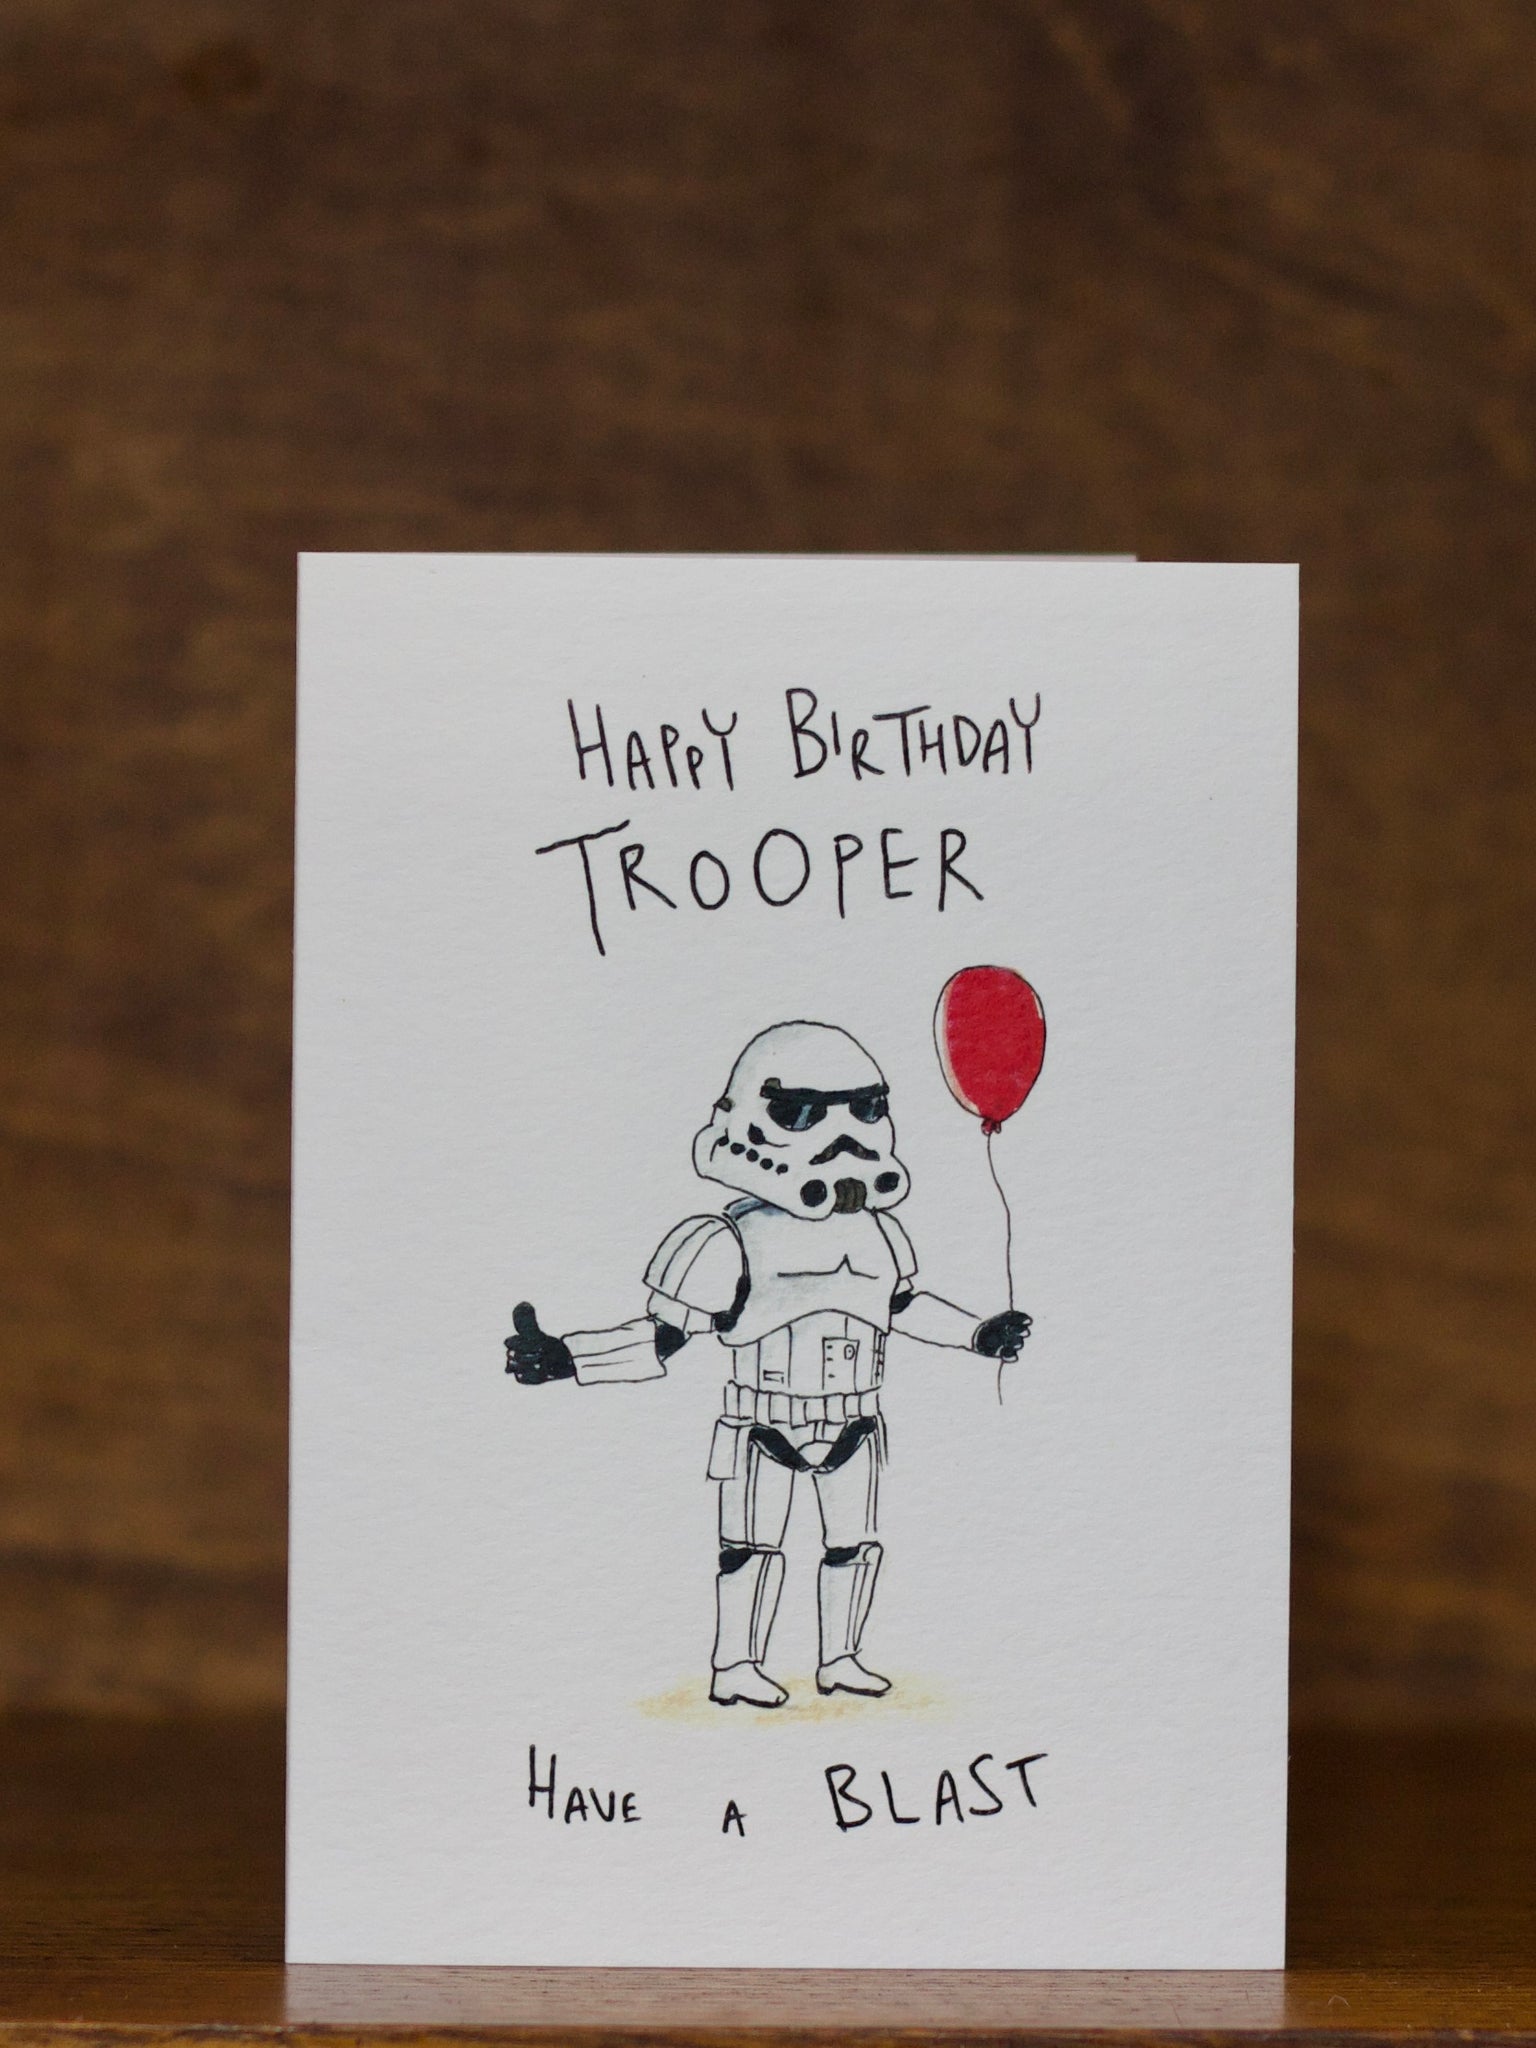 HAPPY BIRTHDAY
TROOPER
HAVE A BLAST